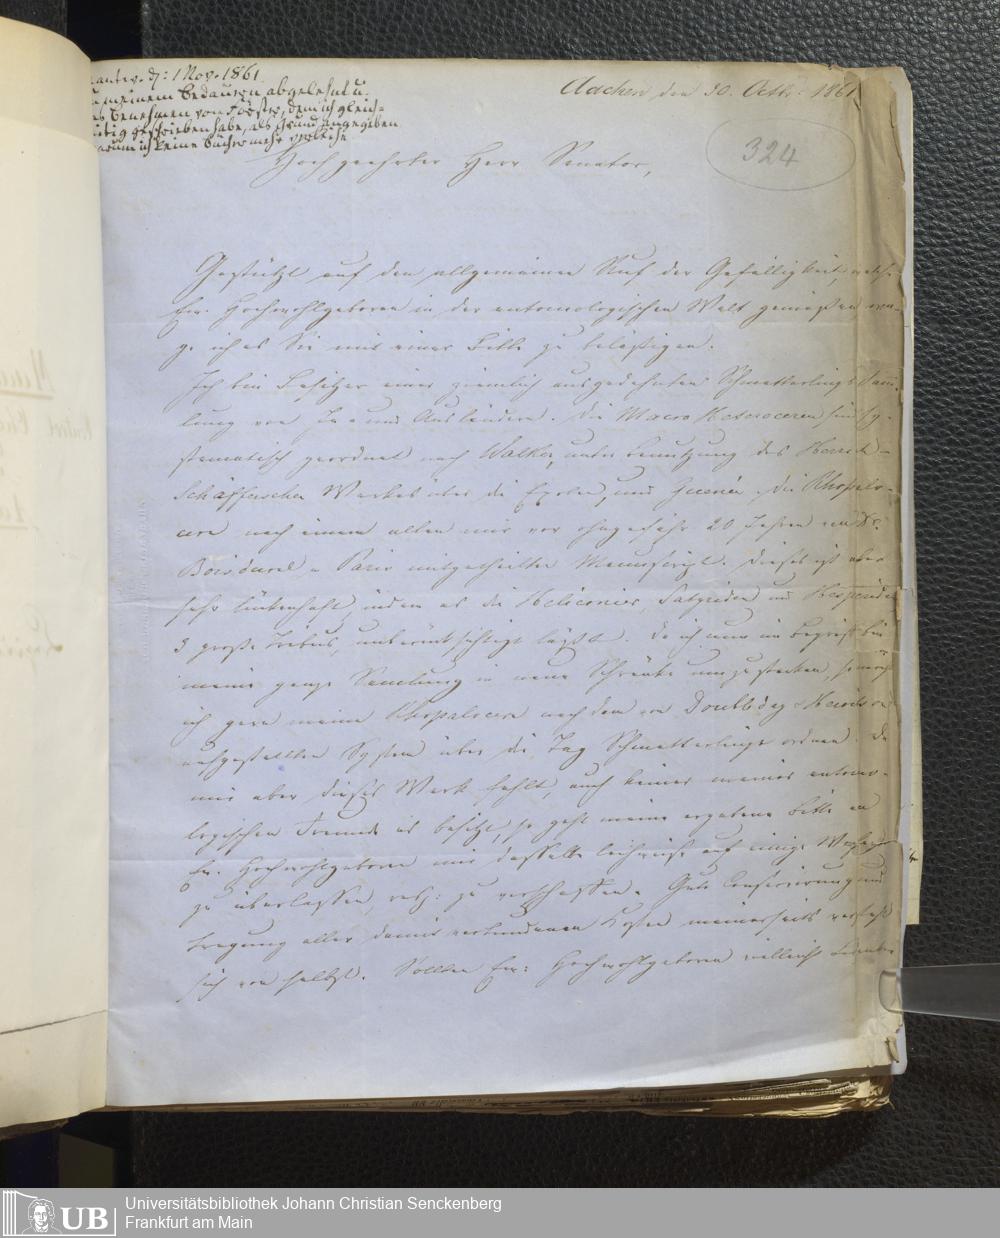 antw. d: 1 Nov. 1861
meinem Bedauern abgelehnt u.
Benehmen von Förster, dem ich gleich=
zeitig geschrieben habe, als Grund angegeben
warum ich keine Bücher mehr verleihe
Aachen den 30. Octbr. 1861
324
Hochgeehrter Herr Senator,
Gestützt auf den allgemeinen Ruf der Gefälligkeit, welche
Ew. Hochwohlgeboren in der entomologischen Welt genießen wa-
ge ich es Sie mit einer Bitte zu belästigen.
Ich bin Besitzer einer ziemlich ausgedehnten Schmetterlings Samm-
lung von In- und Ausländern. Die Macro Heteroceren sind sy-
stematisch geordnet nach Walker, unter Benutzung des Herrich-
Schäfferschen Werkes über die Exoten, und Guenée, die Rhopalo-
cere nach einem alten mir vor ohngefähr 20 Jahren von Dr.
Boisduval in Paris mitgetheilten Manuscript. Dieses ist aber
sehr lückenhaft, indem es die Heliconier, Satyriden und Hesperiden
3 große Tribus, unberücksichtigt läßt. Da ich nun im Begriff bin
meine ganze Sammlung in neue Schränke umzustecken, so möchte
ich gern meine Rhopalocere nach dem von Doubleday & Hewitson
aufgestellten System über die Tag Schmetterlinge ordnen. Da
mir aber dieses Werk fehlt, auch keiner meiner entomo-
logischen Freunde es besitzt, so geht meine ergebene Bitte an
Ew. Hochwohlgeboren mir dasselbe leihweise auf einige Wochen
zu überlassen, resp: zu verschaffen. Gute Conservirung und
Tragung aller damit verbundenen Kosten meinerseits versteht
sich von selbst. Sollten Ew: Hochwohlgeboren vielleicht Bedenken
Universitätsbibliothek Johann Christian Senckenberg
Frankfurt am Main
UB